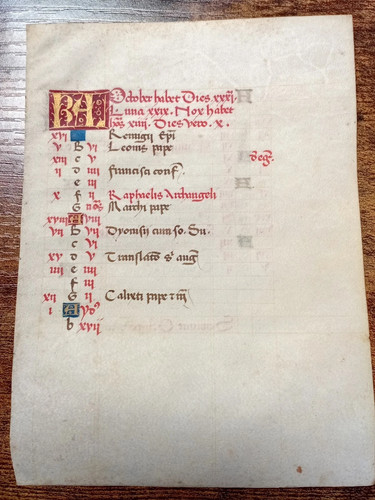 KA October habet Dies xxxi.
Luna xxix. Nox habet
xiiii. Dies vero. x.
xvi Remigii Epi
v b vi Leonis pape
xiii c v
ii d iiii Francisci conf.
e iii
x f ii Raphaelis Archangeli
G nos Marchi pape
xviii A viii
vii b vii Dyonisii cum so. Su.
c vi
xv d v Translatio sci aug
iiii e iiii
f iii
xii G ii Calixti pape
i A yds
b xvii